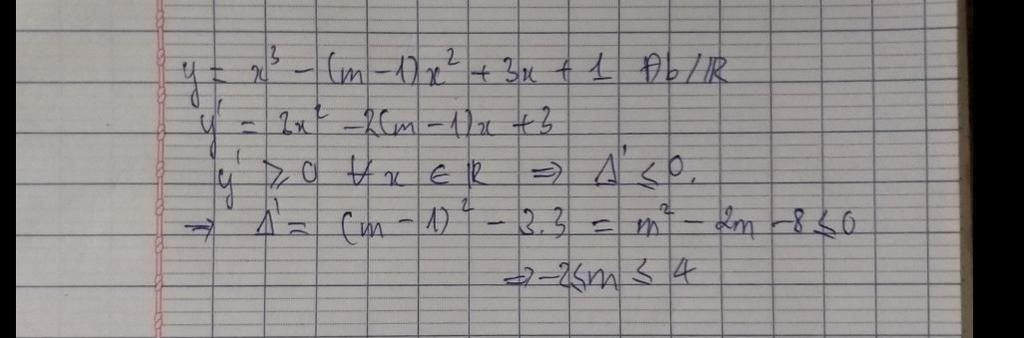 y = x³ - (m - 1)x² + 3x + 1 Đb/ℝ
y' = 3x² - 2(m - 1)x + 3
y' ⩾ 0 ∀x ∈ ℝ ⇒ Δ' ≤ 0.
⇒ Δ' = (m - 1)² - 3.3 = m² - 2m - 8 ≤ 0
⇒ -2 ≤ m ≤ 4